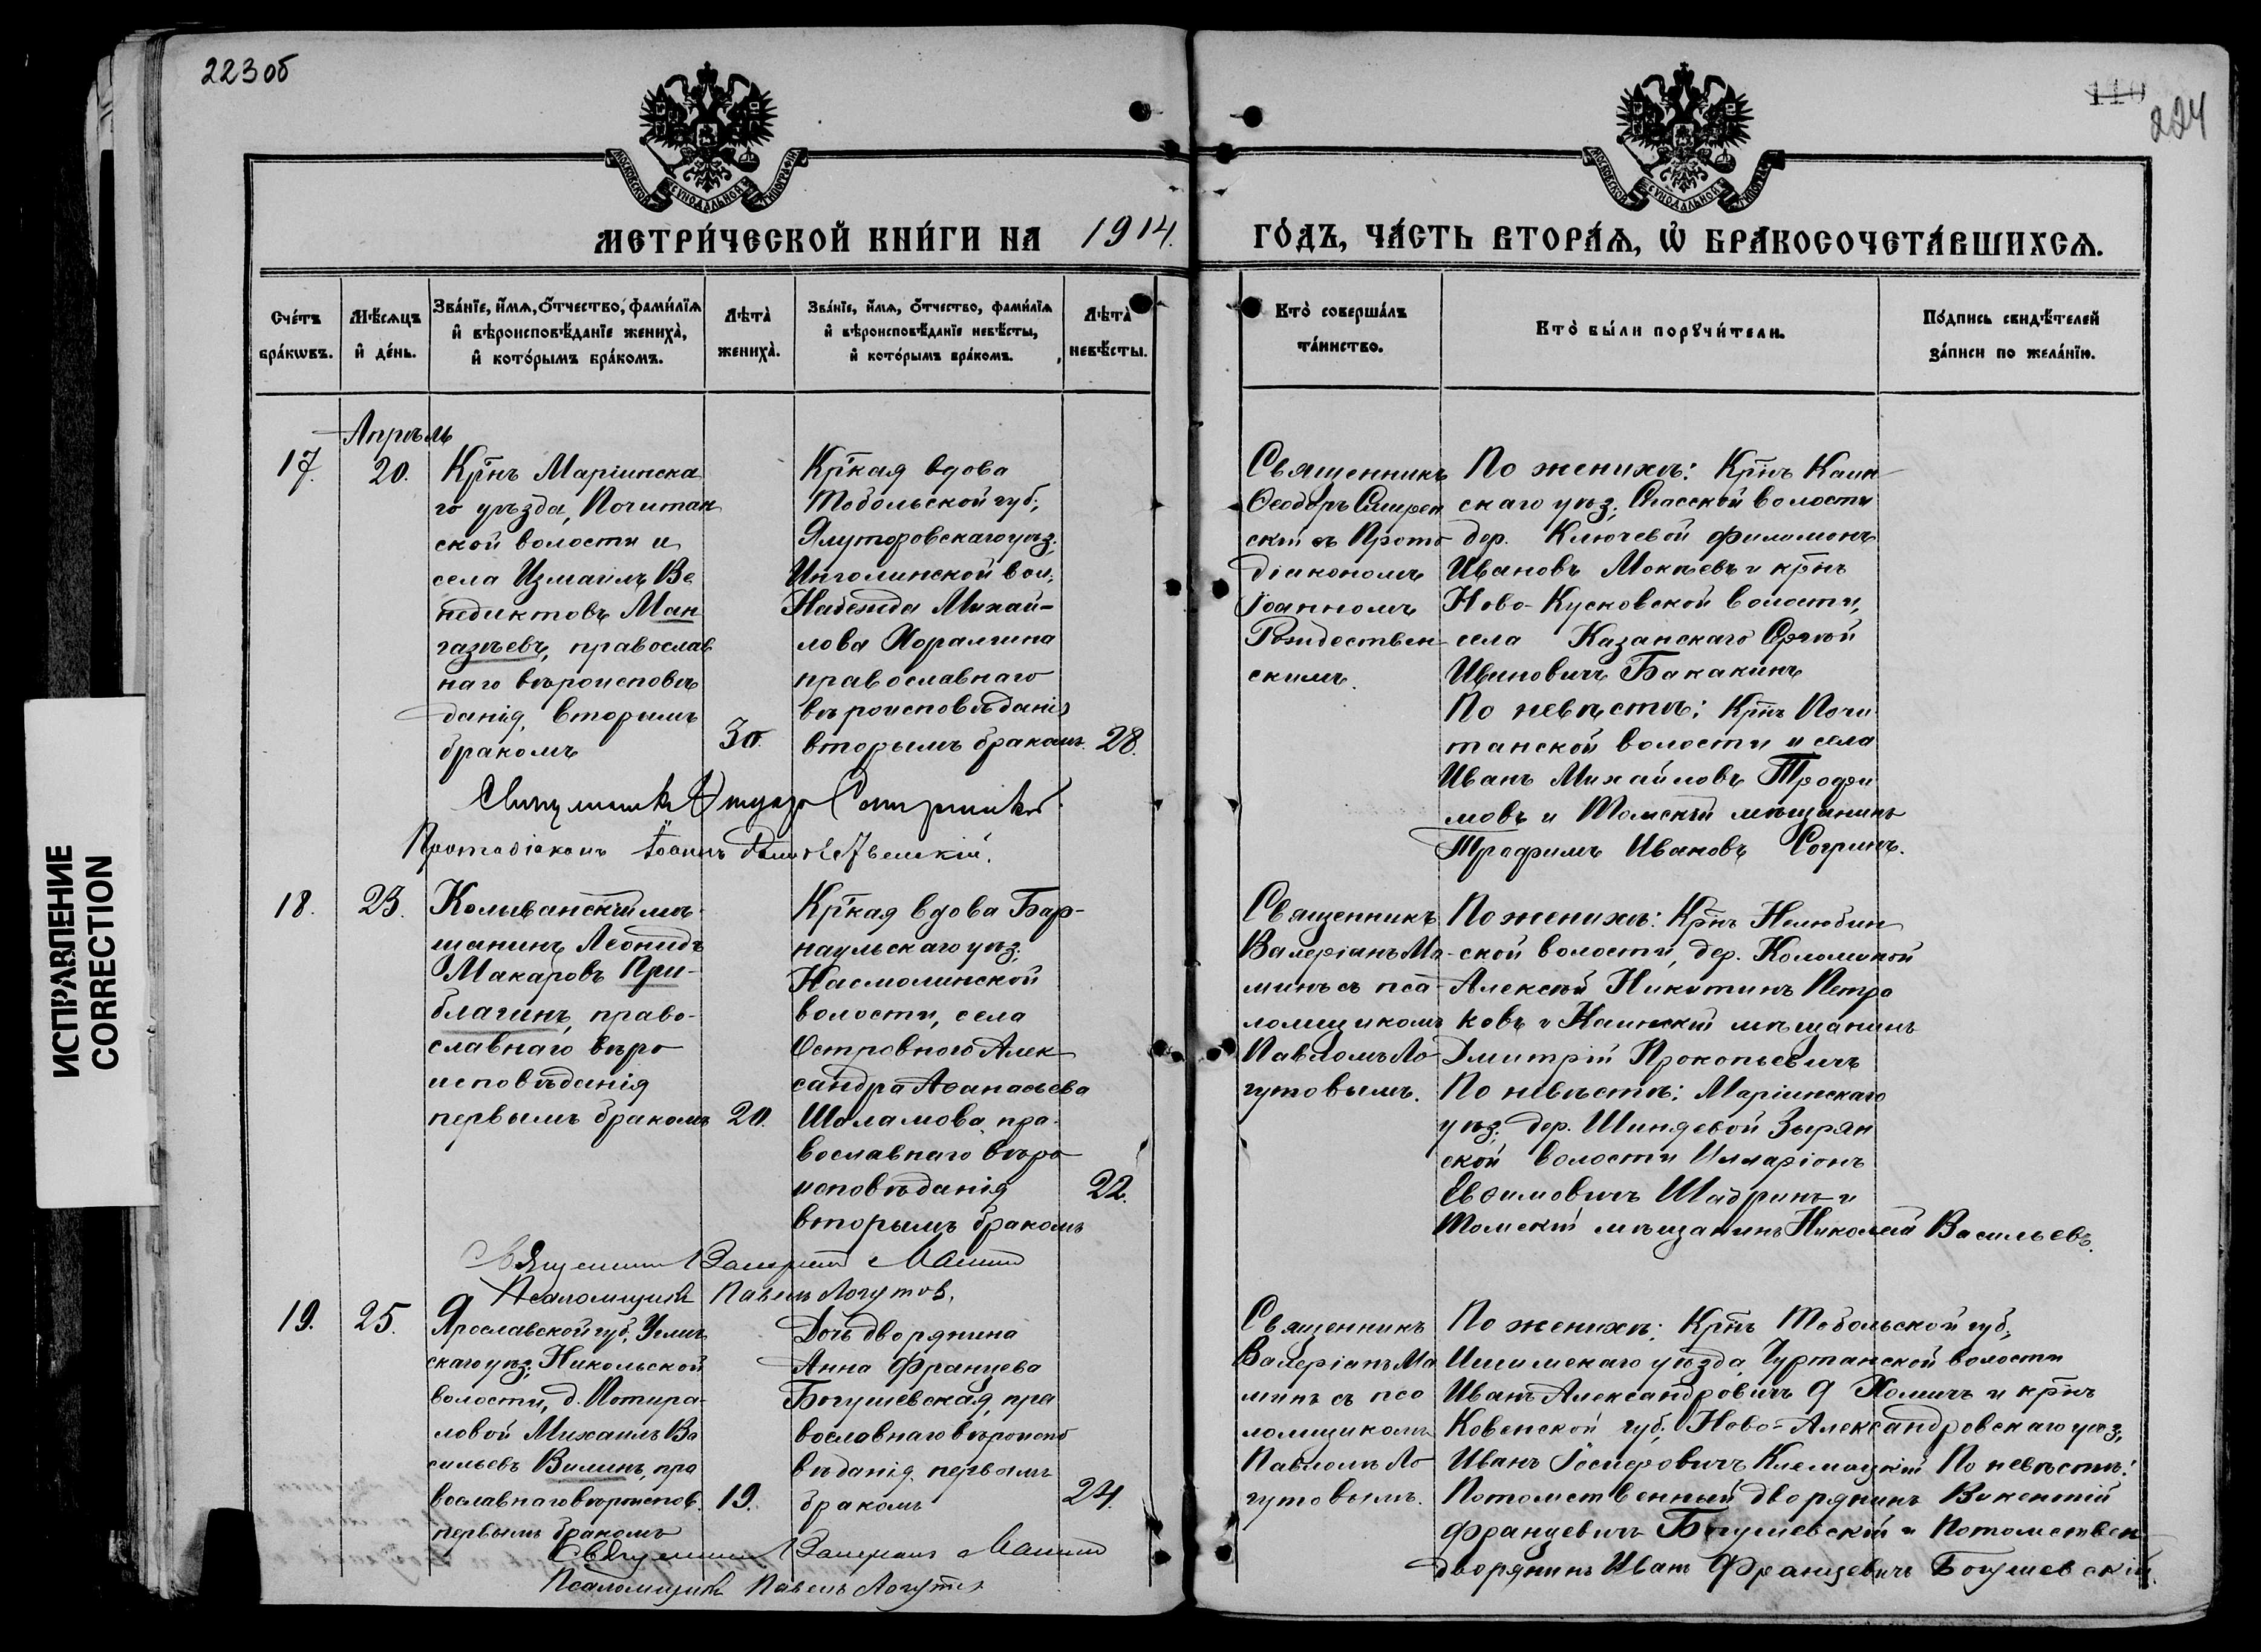 223об
110
224
ИСПРАВЛЕНИЕ
CORRECTION
МОСКОВСКОЙ СѴНОДАЛЬНОЙ ТИПОГРАФІИ
МОСКОВСКОЙ СѴНОДАЛЬНОЙ ТИПОГРАФІИ
МЕТРИ́ЧЕСКОЙ КНИ́ГИ НА 1914.
ГО́ДЪ, ЧА́СТЬ ВТОРА́Я, Ѡ҆ БРАКОСОЧЕТА́ВШИХСЯ.
Сче́тъ
бра́кѡвъ.
Мѣ́сяцъ
и҆ де́нь.
Зва́нїе, и҆́мя, ѻ҆́тчество, фами́лїя
и҆ вѣроисповѣ́данїе жениха̀,
и҆ кото́рымъ бра́комъ.
Лѣта̀
жениха̀.
Зва́нїе, и҆́мя, ѻ҆́тчество, фами́лїя
и҆ вѣроисповѣ́данїе невѣ́сты,
и҆ кото́рымъ бра́комъ.
Лѣта̀
невѣ́сты.
Кто̀ соверша́лъ
та́инство.
Кто̀ бы́ли порꙋчи́тели.
По́дпись свидѣ́телей
за́писи по жела́нїю.
Апрѣль
17.
20.
Кр̅нъ Маріинска
го уѣзда, Почитан
ской волости и
села Измаилъ Ве
недиктовъ Ман
газѣевъ, православ
наго вѣроисповѣ
данія, вторымъ
бракомъ
30.
Кр̅кая вдова
Тобольской губ.,
Ялуторовскаго уѣз.
Ингалинской вол.
Надежда Михай-
лова
православнаго
вѣроисповѣданія
вторымъ бракомъ.
28.
Священникъ
Ѳеодоръ Смирен
скій съ Прото
діакономъ
Іоанномъ
Рождествен-
скимъ.
По женихѣ: Кр̅нъ Каин
скаго уѣз. Спасской волости
дер. Ключевой Филимонъ
Ивановъ Мокѣевъ и кр̅нъ
Ново-Кусковской волости,
села Казанскаго Сергѣй
Ивановичъ Бакакинъ
По невѣстѣ: Кр̅нъ Почи
танской волости и села
Иванъ Михайловъ Трофи
мовъ и Томскій мѣщанинъ
Трофимъ Ивановъ Согринъ.
Протодіаконъ Іоаннъ Рождественскій.
18.
23.
Колыванскій мѣ-
щанинъ Леонидъ
Макаровъ При-
благинъ, право-
славнаго вѣро
исповѣданія
первымъ бракомъ
20.
Кр̅кая вдова Бар-
наульскаго уѣз.
Касмалинской
волости, села
Островного Алек-
сандра Аѳанасьева
Шаламова, пра-
вославнаго вѣро
исповѣданія
вторымъ бракомъ
22.
Священникъ
Валеріанъ Ма-
минъ съ пса-
ломщикомъ
Павломъ Ло-
гутовымъ.
По женихѣ: Кр̅нъ Нелюбин
ской волости, дер. Коломиной
Алексѣй Никитинъ Петра
ковъ и Каинскій мѣщанинъ
Дмитрій Прокопьевичъ
По невѣстѣ: Маріинскаго
уѣз. дер. Шиняевой Зырян
ской волости Илларіонъ
Евѳимовичъ Шадринъ и
Томскій мѣщанинъ Николай Васильевъ.
Священникъ Валеріанъ Маминъ
Псаломщикъ Павелъ Логутов.
19.
25.
Ярославской губ. Углич
скаго уѣз. Никольской
волости, д. Потира-
ловой Михаилъ Ва
сильевъ Вилинъ, пра
вославнаго вѣроиспов.
первымъ бракомъ
19.
Дочь дворянина
Анна Францева
Богушевская, пра
вославнаго вѣроиспо
вѣданія, первымъ
бракомъ
24.
Священникъ
Валеріанъ Ма
минъ съ пса
ломщикомъ
Павломъ Ло
гутовымъ.
По женихѣ: Кр̅нъ Тобольской губ.,
Ишимскаго уѣзда, Чуртанской волости
Иванъ Александровичъ Хомичъ и кр̅нъ
Ковенской губ. Ново-Александровскаго уѣз.
Иванъ По невѣстѣ:
Потомственный дворянинъ Викентій
Францевичъ Богушевскій и Потомствен
дворянинъ Иванъ Францевичъ Богушевскій.
Священникъ Валеріанъ Маминъ
Псаломщикъ Павелъ Логутов